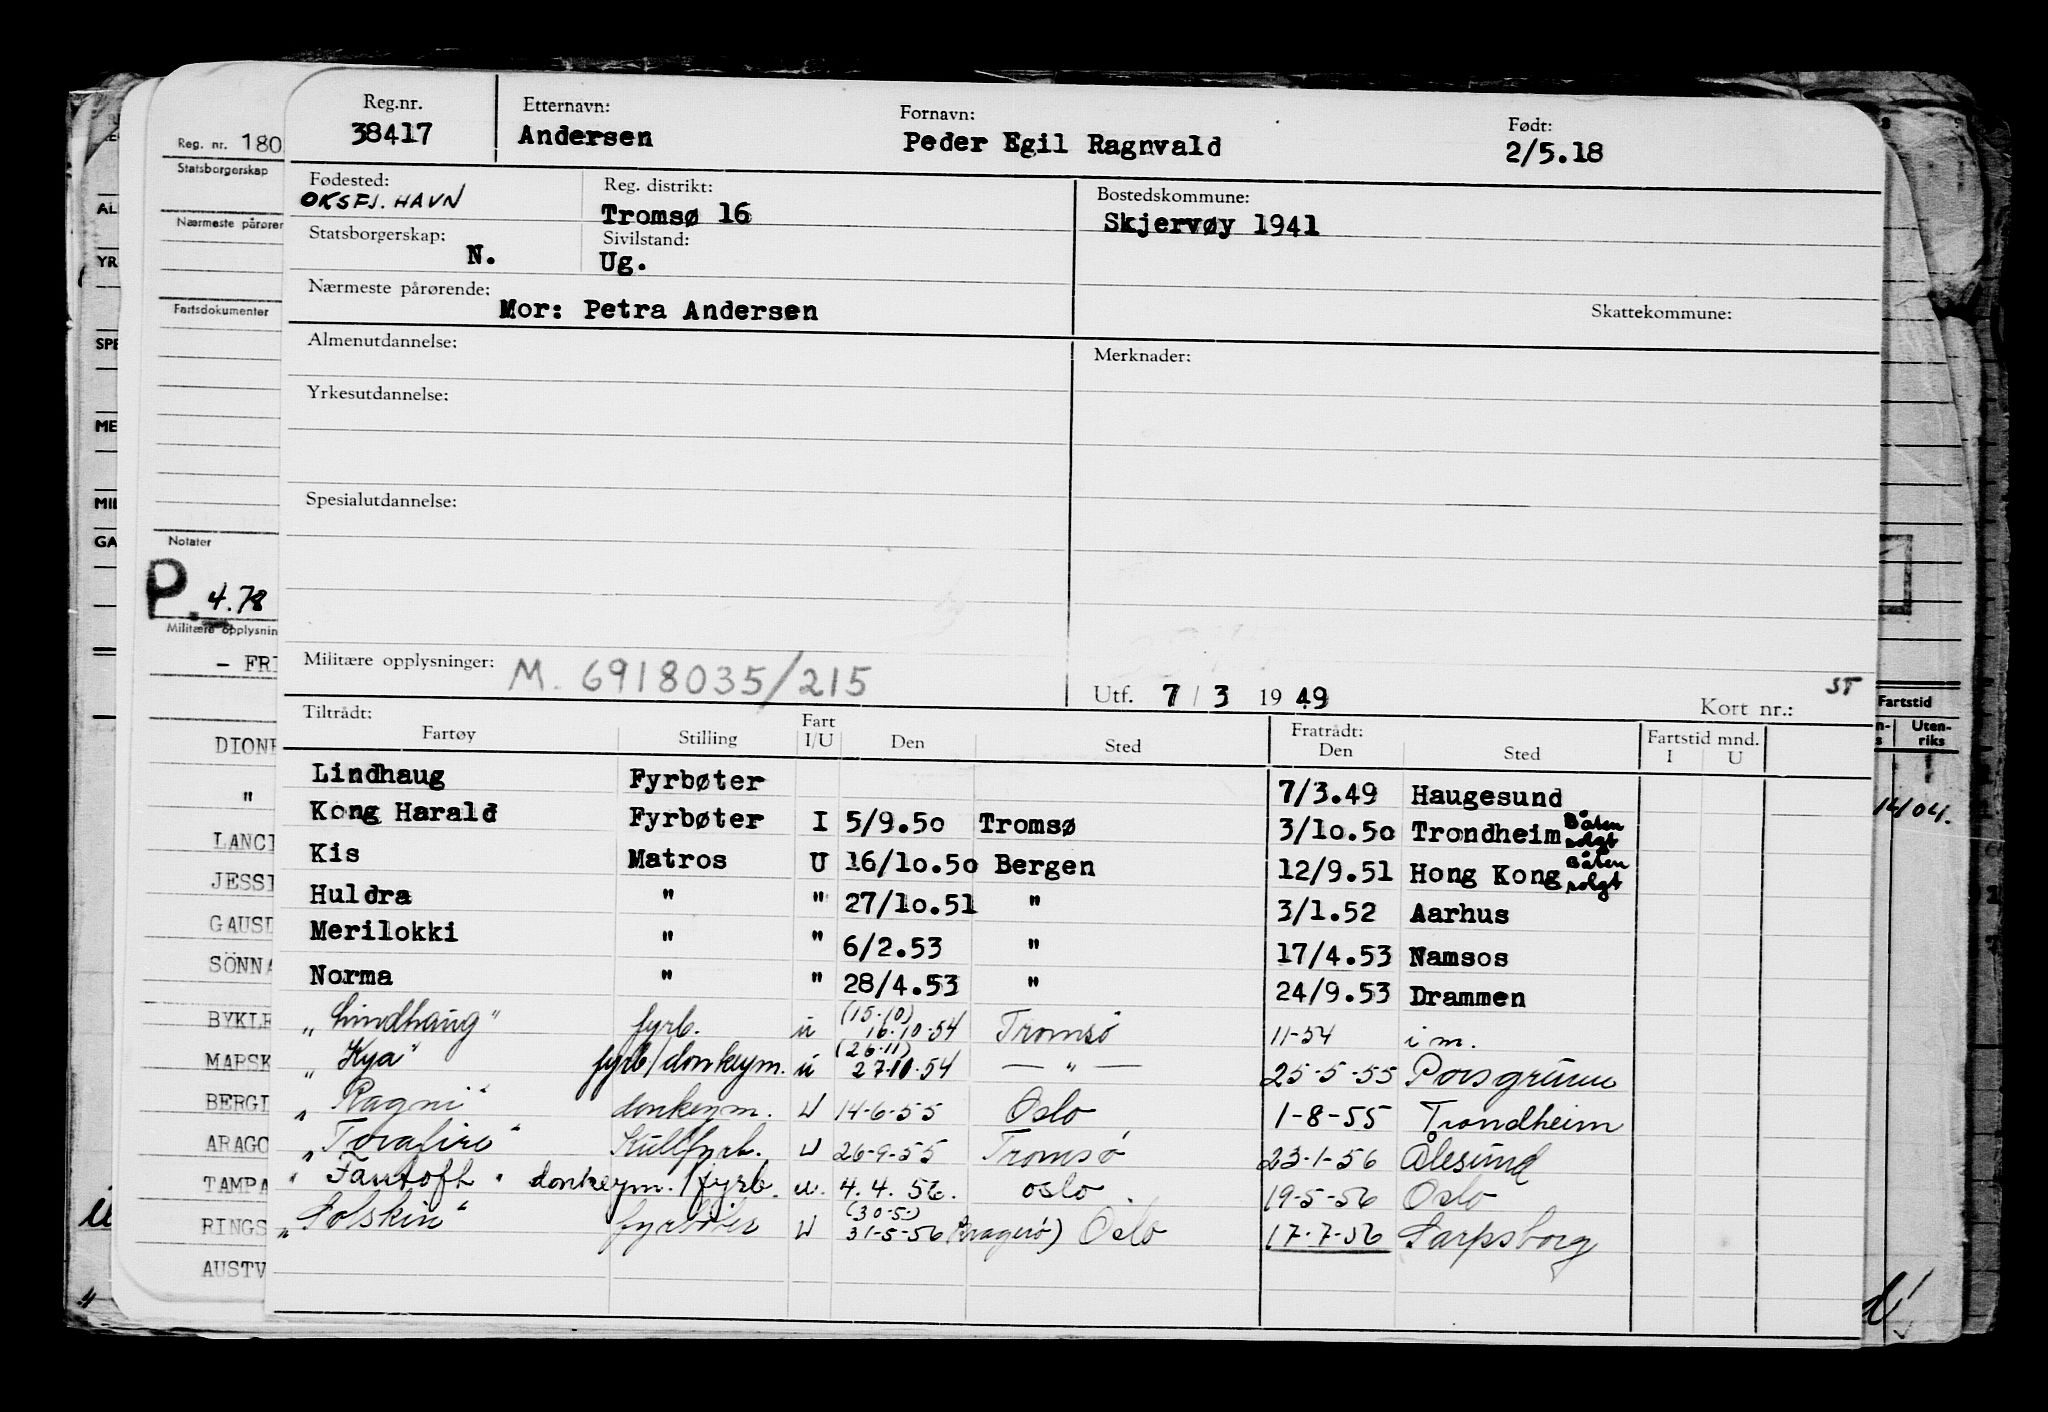 Reg.nr. Etternavn: Fornavn: Født:
38417 Andersen Peder Egil Ragnvald 2/5.18
Fødested: Reg. distrikt: Bostedskommune:
OKSFJ. HAVN Tromsø 16 Skjervøy 1941
Statsborgerskap: Sivilstand:
N. Ug.
Nærmeste pårørende: Skattekommune:
Mor: Petra Andersen
Almenutdannelse: Merknader:
Yrkesutdannelse:
Spesialutdannelse:
Militære opplysninger: M. 6918035/215 Utf. 7/3 1949 Kort nr.: ST
Tiltrådt: Fratrådt: Fartstid mnd.
Fartøy Stilling Fart I/U Den Sted Den Sted I U
Lindhaug Fyrbøter 7/3.49 Haugesund
Kong Harald Fyrbøter I 5/9.50 Tromsø 3/10.50 Trondheim Båten solgt
Kis Matros U 16/10.50 Bergen 12/9.51 Hong Kong Båten solgt
Huldra " " 27/10.51 " 3/1.52 Aarhus
Merilokki " " 6/2.53 " 17/4.53 Namsos
Norma " " 28/4.53 " 24/9.53 Drammen
"Lindhaug" fyrb. u (15.10) 16.10.54 Tromsø 11-54 i m.
"Kya" fyrb/donkeym. u (26.11) 27.10.54 — " — 25-5-55 Porsgrunn
"Ragni" donkeym. U 14-6-55 Oslo 1-8-55 Trondheim
"Torafire" Kullfyrb. U 26-9-55 Tromsø 23-1-56 Ålesund
"Fantoft" donkeym./fyrb. u. 4.4.56. oslo. 19-5-56 Oslo
"Solskin" fyrbøter U (30.5) 31-5-56 (Kragerø) Oslo 17.7-56 Sarpsborg
Reg. nr. 180
Statsborgerskap
Nærmeste pårøren
Fartsdokumenter
Notater
P. 4.78
Militære opplysnin
- FRI
DIONE
"
LANCI
JESSI
GAUSD
SÖNNA
BYKLE
MARSK
BERGL
ARAGO
TAMPA
RINGS
AUSTV
AL
YR
SPE
ME
MIL
GA
Fartstid
Uten-
riks
1404.